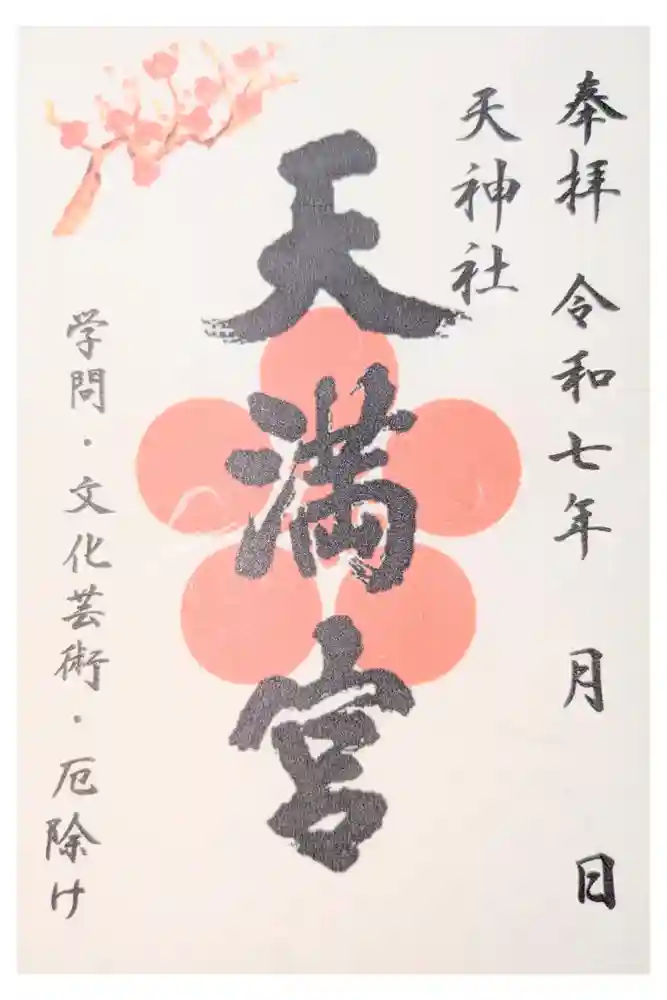 奉拝 令和七年 月 日
天神社
天満宮
学問・文化芸術・厄除け